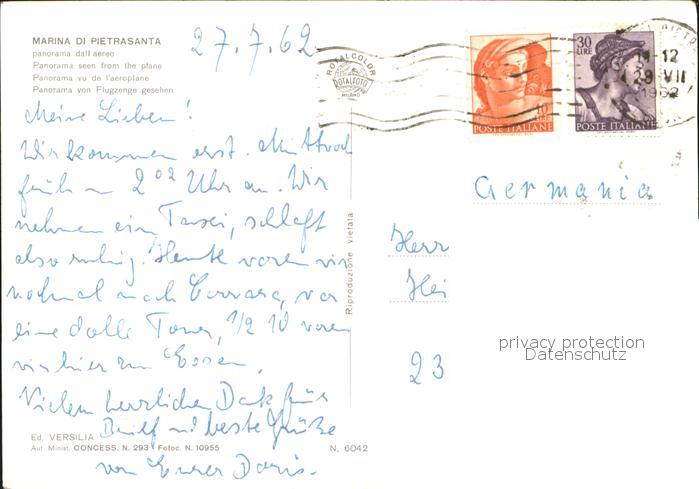 MARINA DI PIETRASANTA
panorama dall aereo
Panorama seen from the plane
Panorama vu de l'aeroplane
Panorama von Flugzenge gesehen
27.7.62
ROTALCOLOR
ROTALFOTO
MILANO
10
LIRE
POSTE ITALIANE
30
LIRE
POSTE ITALIANE
11-12
28 VII
1962
Meine Lieben!
Wir kommen erst Mittwoch
früh 2 02 Uhr an. Wir
nehmen ein Taxi, schlaft
also ruhig. Heute waren wir
nochmal nach Carrara, war
eine dolle Tour, 1/2 10 waren
wir hier zum Essen.
Vielen herzlichen Dank für
Brief und beste Grüße
von Eurer Doris.
Riproduzione vietata
Germania
Herr
Hei
23
privacy protection
Datenschutz
Ed. VERSILIA
Aut. Minist. CONCESS. N. 293 Fotoc. N. 10955
N. 6042